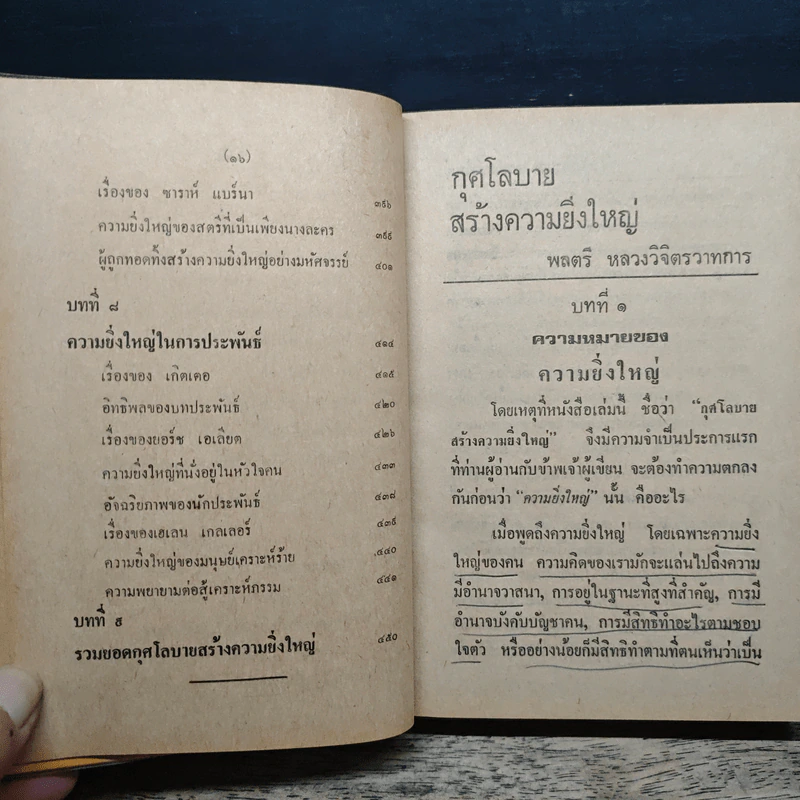 (๑๖)
เรื่องของ ซาราห์ แบร์นา ๓๙๖
ความยิ่งใหญ่ของสตรีที่เป็นเพียงนางละคร ๓๙๙
ผู้ถูกทอดทิ้งสร้างความยิ่งใหญ่อย่างมหัศจรรย์ ๔๐๑
บทที่ ๘
ความยิ่งใหญ่ในการประพันธ์ ๔๑๔
เรื่องของ เกิตเตอ ๔๑๕
อิทธิพลของบทประพันธ์ ๔๒๐
เรื่องของยอร์ช เอเลียต ๔๒๖
ความยิ่งใหญ่ที่นั่งอยู่ในหัวใจคน ๔๓๓
อัจฉริยภาพของนักประพันธ์ ๔๓๘
เรื่องของเฮเลน เกลเลอร์ ๔๓๙
ความยิ่งใหญ่ของมนุษย์เคราะห์ร้าย ๔๔๐
ความพยายามต่อสู้เคราะห์กรรม ๔๔๑
บทที่ ๙
รวมยอดกุศโลบายสร้างความยิ่งใหญ่ ๔๕๐
กุศโลบาย
สร้างความยิ่งใหญ่
พลตรี หลวงวิจิตรวาทการ
บทที่ ๑
ความหมายของ
ความยิ่งใหญ่
โดยเหตุที่หนังสือเล่มนี้ ชื่อว่า “กุศโลบาย
สร้างความยิ่งใหญ่” จึงมีความจำเป็นประการแรก
ที่ท่านผู้อ่านกับข้าพเจ้าผู้เขียน จะต้องทำความตกลง
กันก่อนว่า “ความยิ่งใหญ่” นั้น คืออะไร
เมื่อพูดถึงความยิ่งใหญ่ โดยเฉพาะความยิ่ง
ใหญ่ของคน ความคิดของเรามักจะแล่นไปถึงความ
มีอำนาจวาสนา, การอยู่ในฐานะที่สูงที่สำคัญ, การมี
อำนาจบังคับบัญชาคน, การมีสิทธิทำอะไรตามชอบ
ใจตัว หรืออย่างน้อยก็มีสิทธิทำตามที่ตนเห็นว่าเป็น